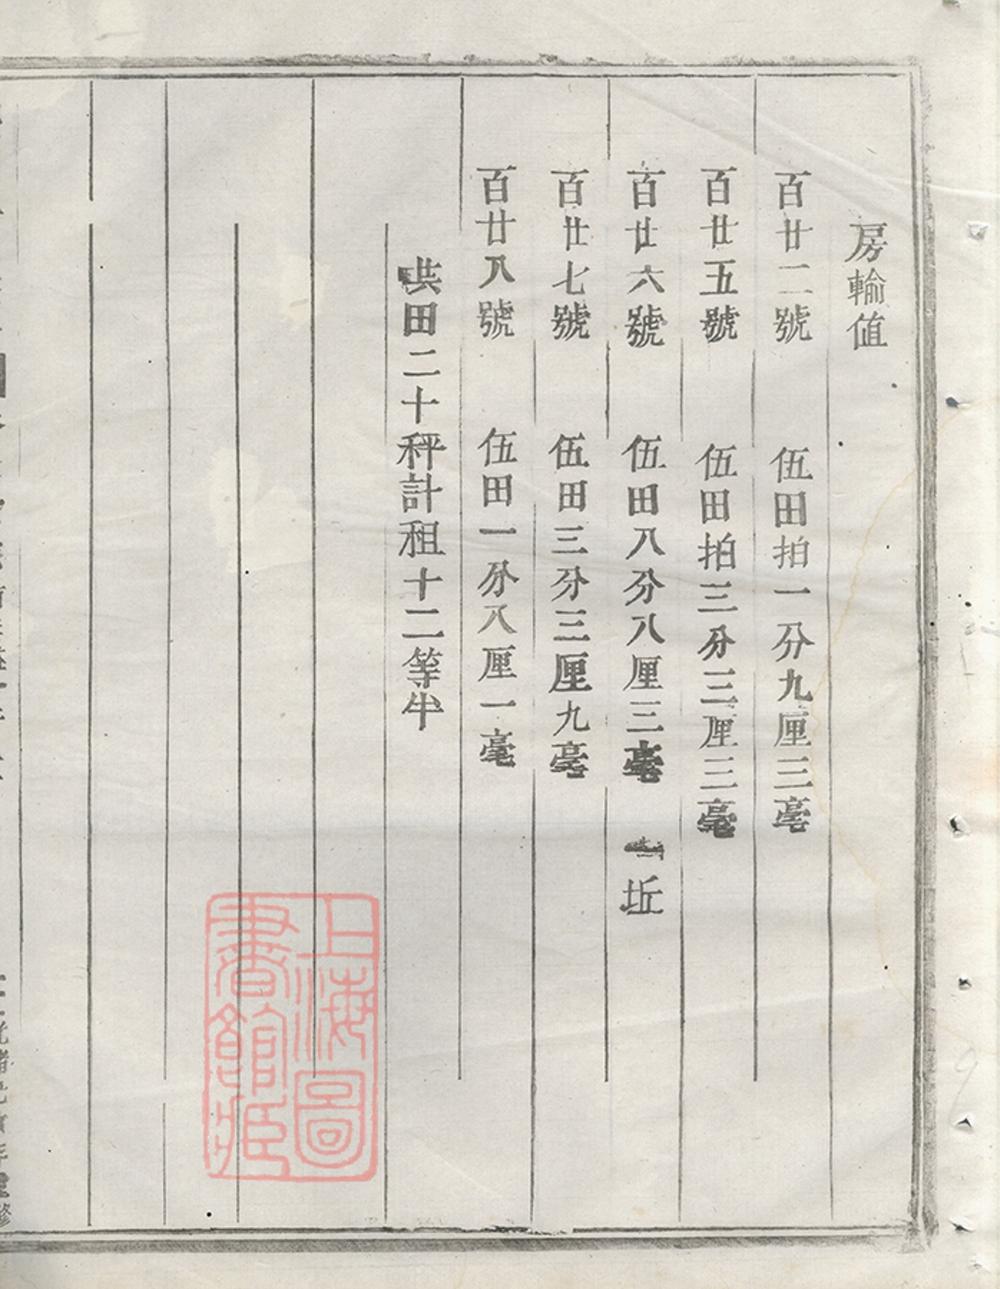 房輸值
百廿二號 伍田拍一分九厘三毫
百廿五號 伍田拍三分三厘三毫
百廿六號 伍田八分八厘三毫 一坵
百廿七號 伍田三分三厘九毫
百廿八號 伍田一分八厘一毫
共田二十秤計租十二等半
上海圖
書館藏